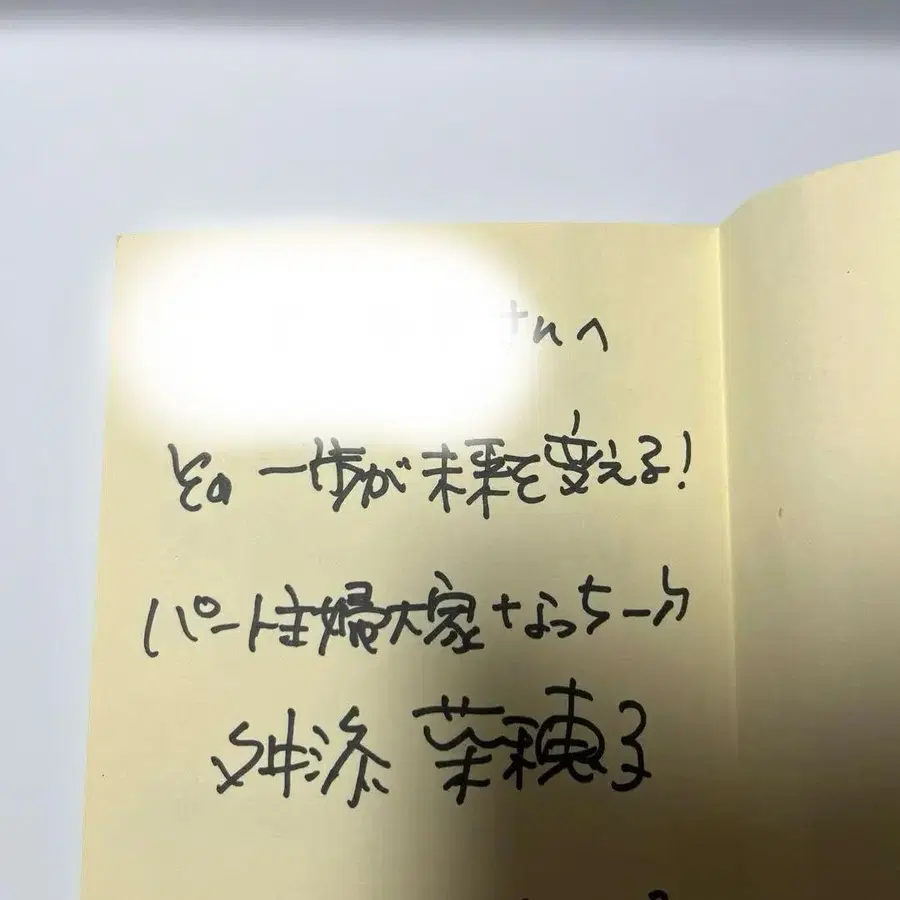 さんへ
その一歩が未来を変える!
パート主婦大家なっちー
舛添 菜穂子